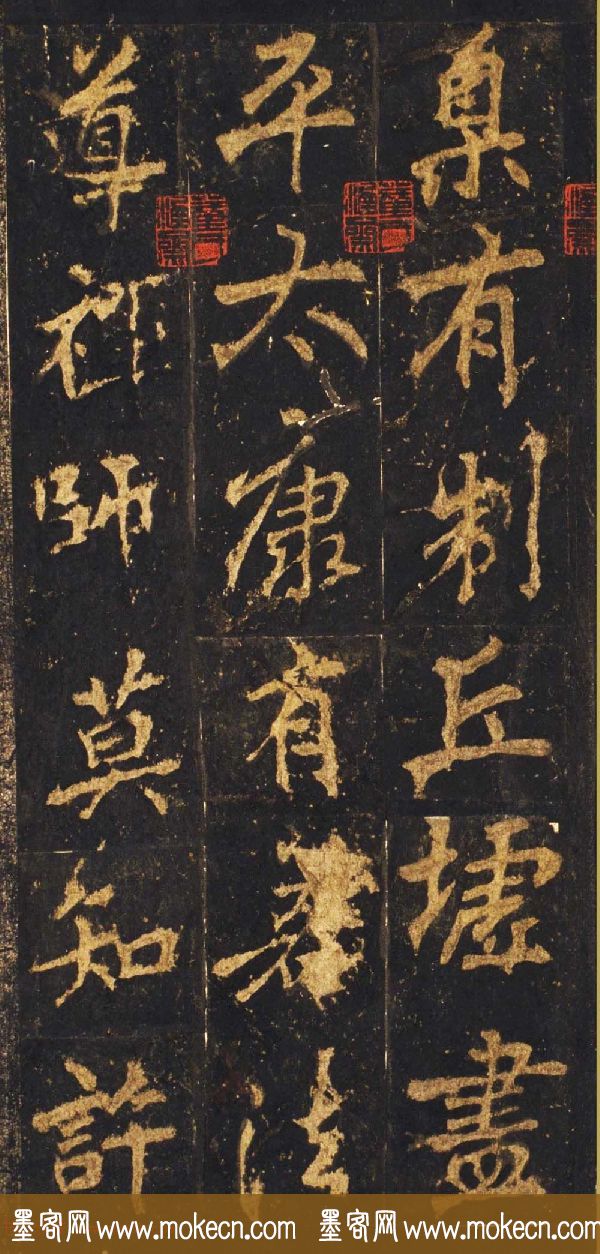 臬有制丘墟盡
平太康有若法
導禪師莫知許
墨客网 www.mokecn.com 墨客网 www.mokecn.com